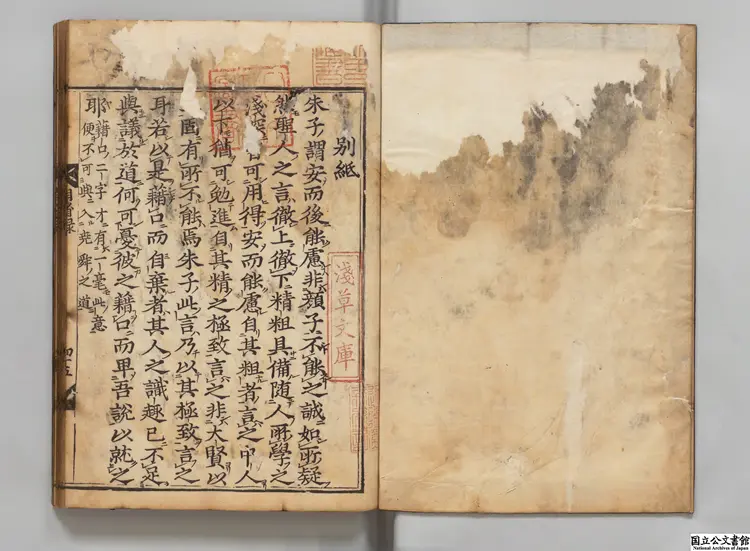 別紙
朱子謂安而後能慮非顔子不能之誠如所疑
然聖人之言徹上徹下精粗具備随人所學之
淺 可用得安而能慮自其粗者言之中人
以下猶可勉進自其精之極致言之非大賢以
固有所不能焉朱子此言乃以其極致言之
耳若以是藉口而自棄者其人之識趣已不足
與議於道何可憂彼之藉口而卑吾説以就之
耶藉口二字才有一毫此意
便不可與入堯舜之道
省録
淺草文庫
国立公文書館
National Archives of Japan